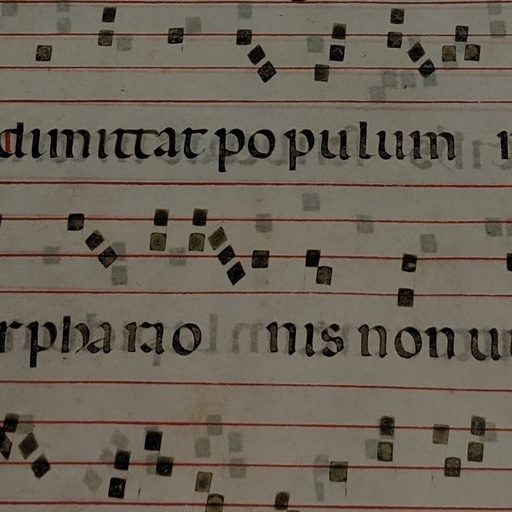 dimittat populum
pharao nis non